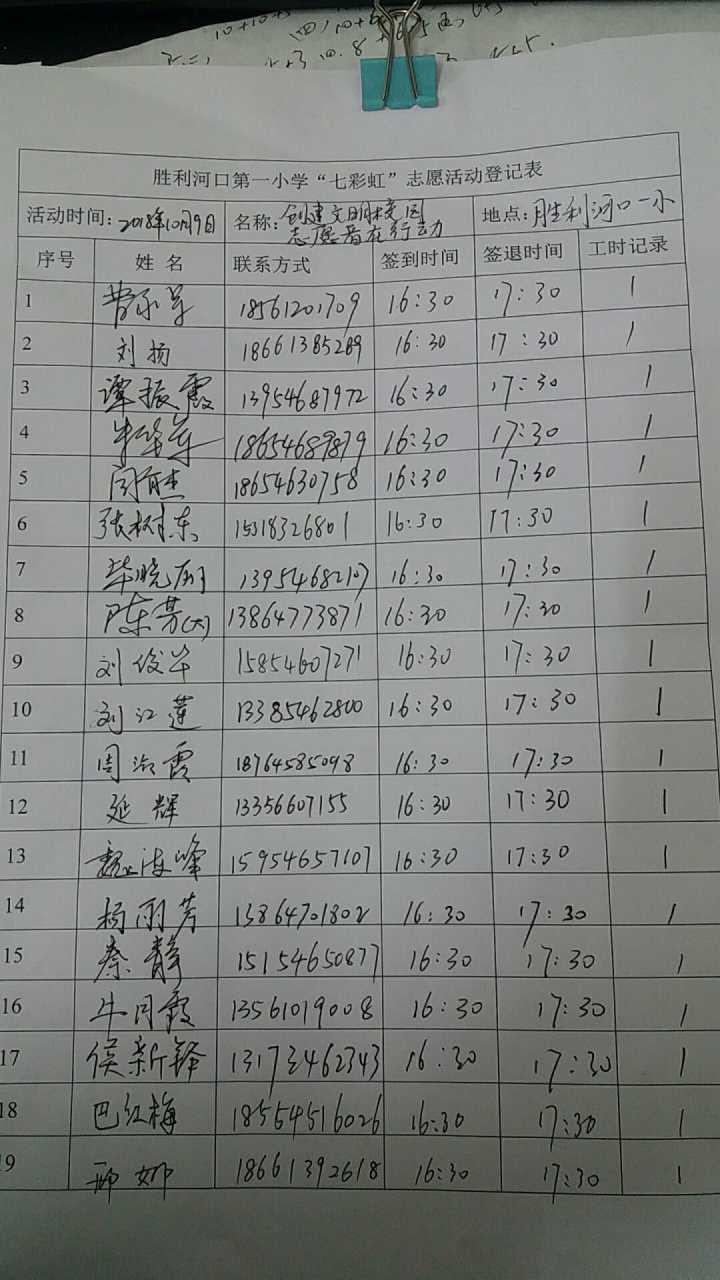 胜利河口第一小学“七彩虹”志愿活动登记表
活动时间:2018年10月9日 名称:创建文明校园志愿者在行动 地点:胜利河口一小
序号 姓名 联系方式 签到时间 签退时间 工时记录
1 曹永军 18561201709 16:30 17:30 1
2 刘扬 18661385289 16:30 17:30 1
3 谭振霞 13954687972 16:30 17:30 1
4 18654689879 16:30 17:30 1
5 18654630758 16:30 17:30 1
6 张树东 15318326801 16:30 17:30 1
7 毕晓丽 13954682107 16:30 17:30 1
8 陈芳(大) 13864773871 16:30 17:30 1
9 刘俊华 15854607271 16:30 17:30 1
10 刘江莲 13385462800 16:30 17:30 1
11 周海霞 18764585098 16:30 17:30 1
12 延辉 13356607155 16:30 17:30 1
13 魏海峰 15954657107 16:30 17:30 1
14 杨雨芳 13864701802 16:30 17:30 1
15 秦静 15154650877 16:30 17:30 1
16 牛月霞 13561019008 16:30 17:30 1
17 侯新铎 13173462343 16:30 17:30 1
18 巴红梅 18554516026 16:30 17:30 1
19 邢娜 18661392618 16:30 17:30 1